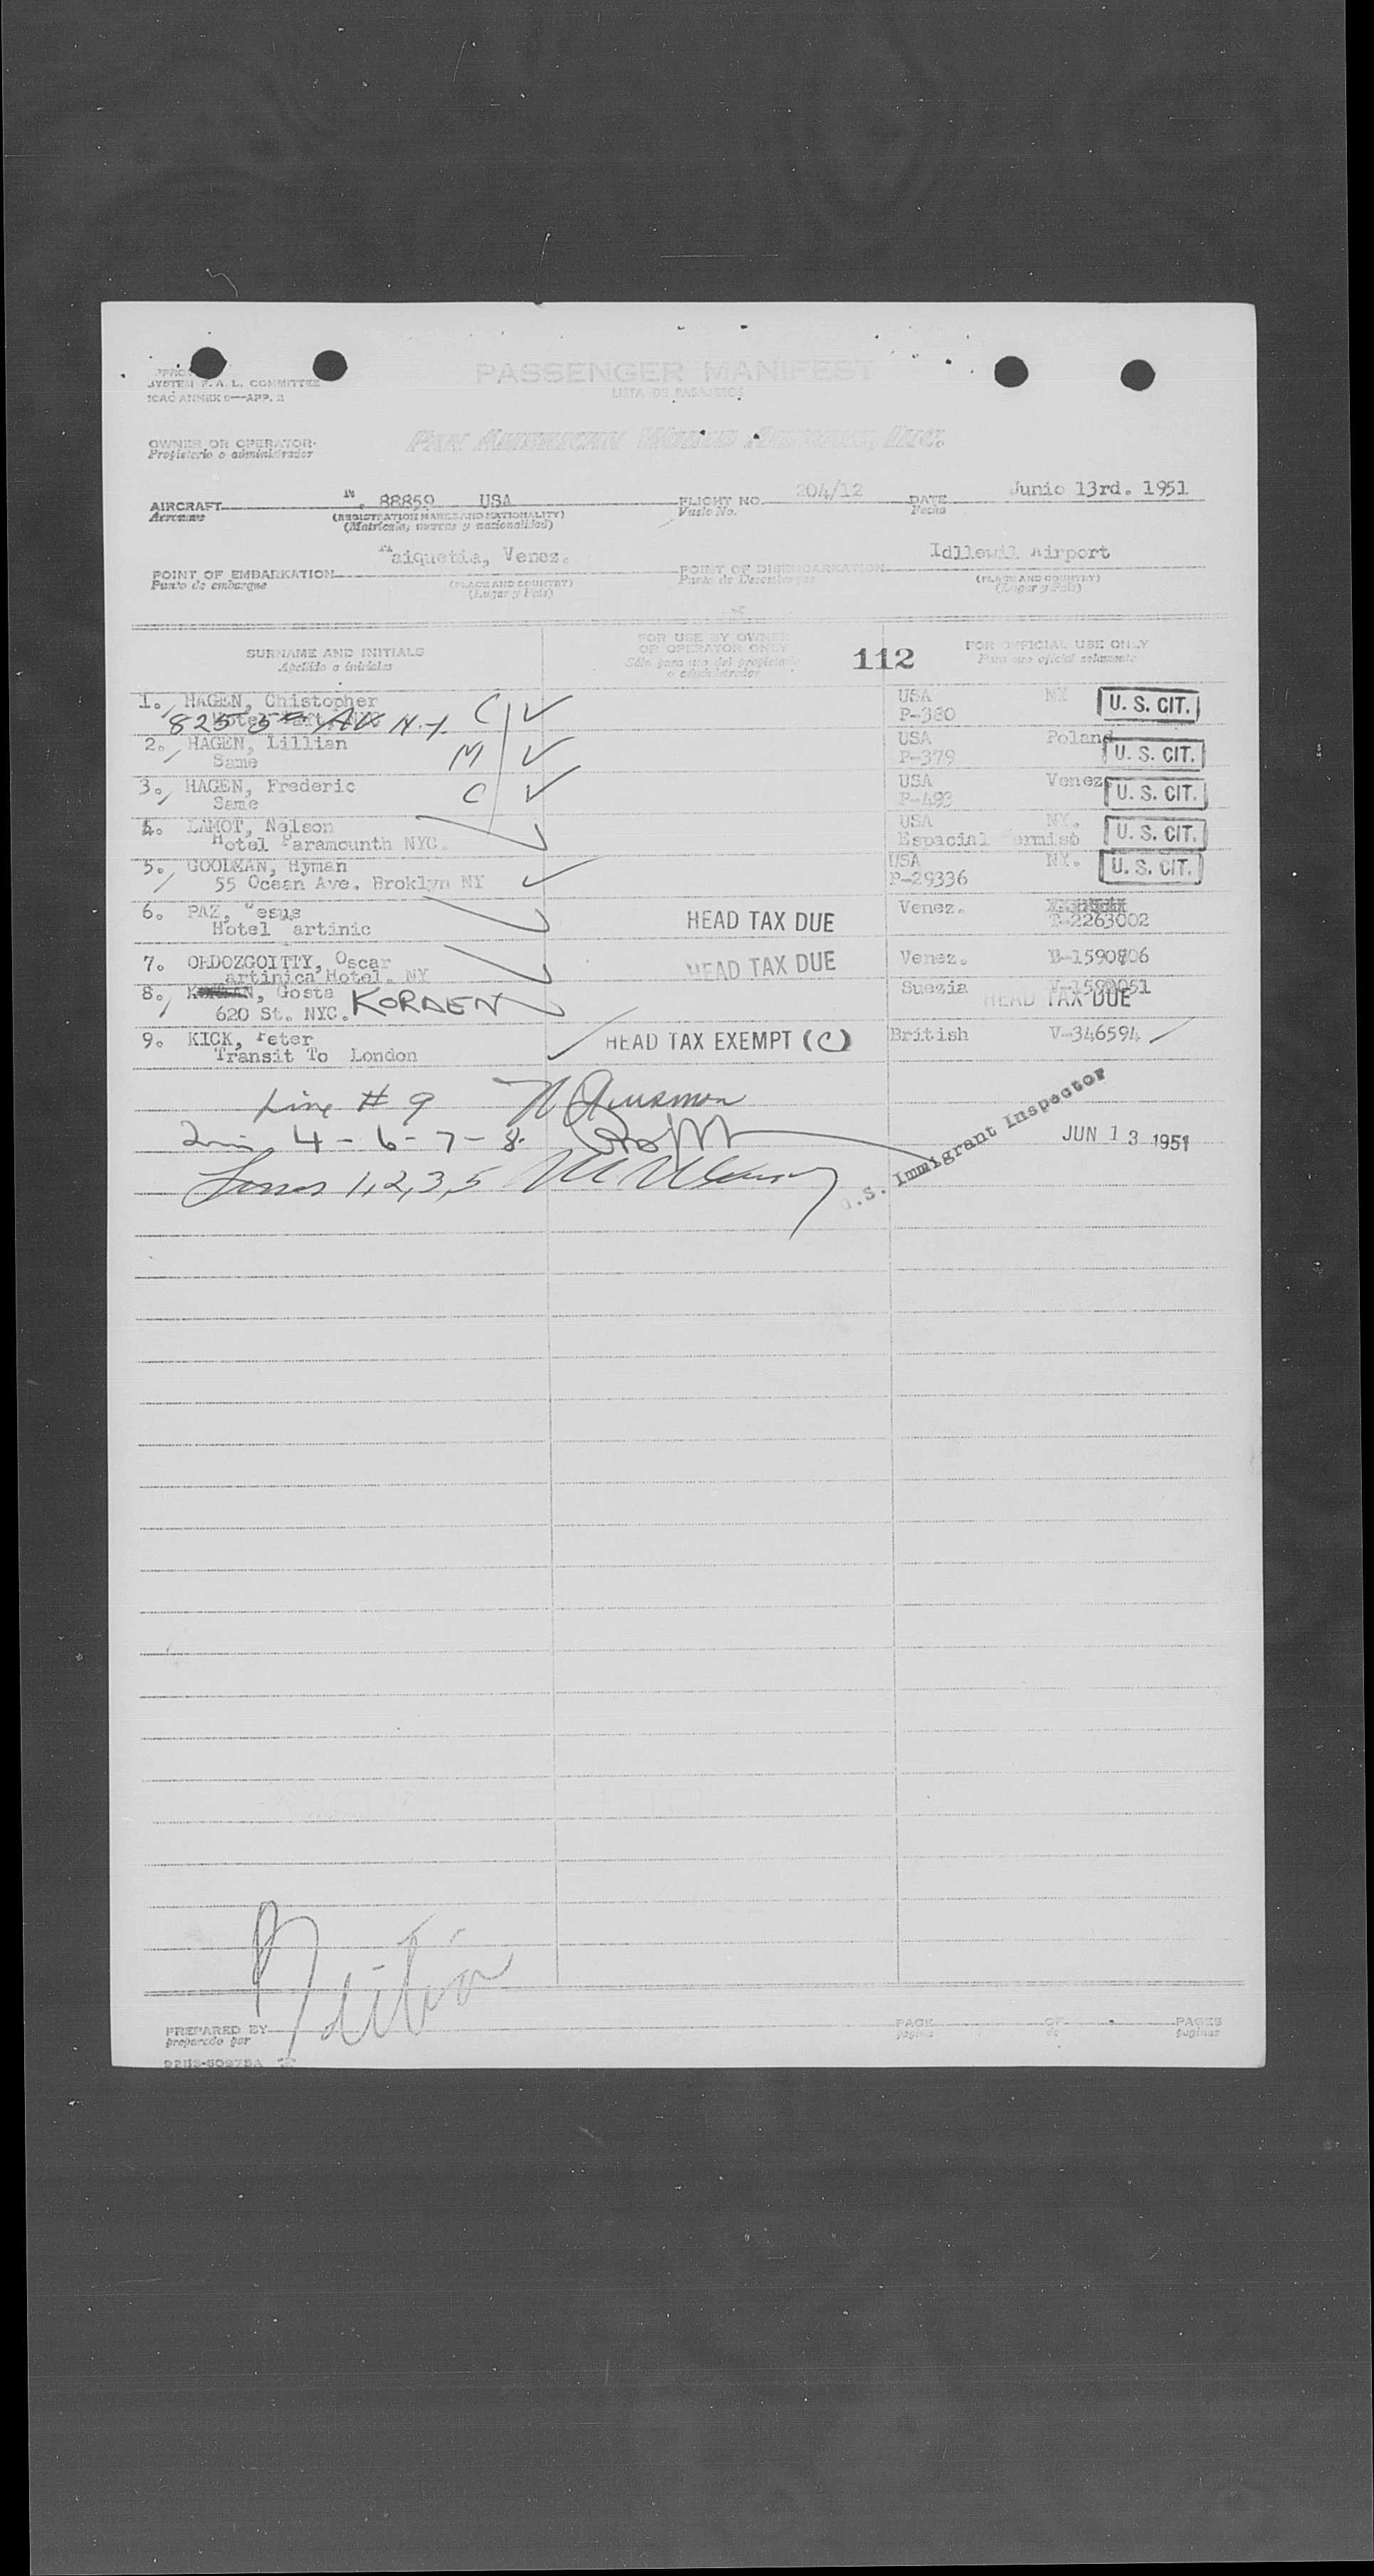 SYSTEM F.A.L. COMMITTEE
ICAO ANNEX 9—APP. 2
PASSENGER MANIFEST
LISTA DE PASAJEROS
OWNER OR OPERATOR
Propietario o administrador
PAN AMERICAN WORLD AIRWAYS, INC.
AIRCRAFT N. 88859 USA FLIGHT NO. 204/12 DATE Junio 13rd. 1951
Aeronave (REGISTRATION MARKS AND NATIONALITY) Vuelo No. Fecha
(Matricula, marcas y nacionalidad)
Maiquetia, Venez. Idllewil Airport
POINT OF EMBARKATION POINT OF DISEMBARKATION
Punto de embarque (PLACE AND COUNTRY) Punto de Desembarque (PLACE AND COUNTRY)
(Lugar y País) (Lugar y País)
SURNAME AND INITIALS FOR USE BY OWNER OR OPERATOR ONLY 112 FOR OFFICIAL USE ONLY
Apellido e iniciales Sólo para uso del propietario o administrador Para uso oficial solamente
1. HAGEN, Chistopher C USA NY U. S. CIT.
825 5th AV N.Y. P-380
2. HAGEN, Lillian M USA Poland U. S. CIT.
Same P-379
3. HAGEN, Frederic C USA Venez. U. S. CIT.
Same P-493
4. LAMOT, Nelson USA NY. U. S. CIT.
Hotel Paramounth NYC. Espacial ermiso
5. GOODMAN, Hyman USA NY. U. S. CIT.
55 Ocean Ave. Broklyn NY P-29336
6. PAZ, Jesus HEAD TAX DUE Venez.
Hotel artinic T-2263002
7. ORDOZGOITTY, Oscar HEAD TAX DUE Venez. B-1590806
artinica Hotel. NY
8. Gosta KORDEN Suezia V-1590051
620 St. NYC. HEAD TAX DUE
9. KICK, Peter HEAD TAX EXEMPT (C) British V-346594
Transit To London
Line # 9
Lines 4-6-7-8-
Lines 1,2,3,5
U.S. Immigrant Inspector
JUN 13 1951
PREPARED BY PAGE OF PAGES
preparado por página de páginas